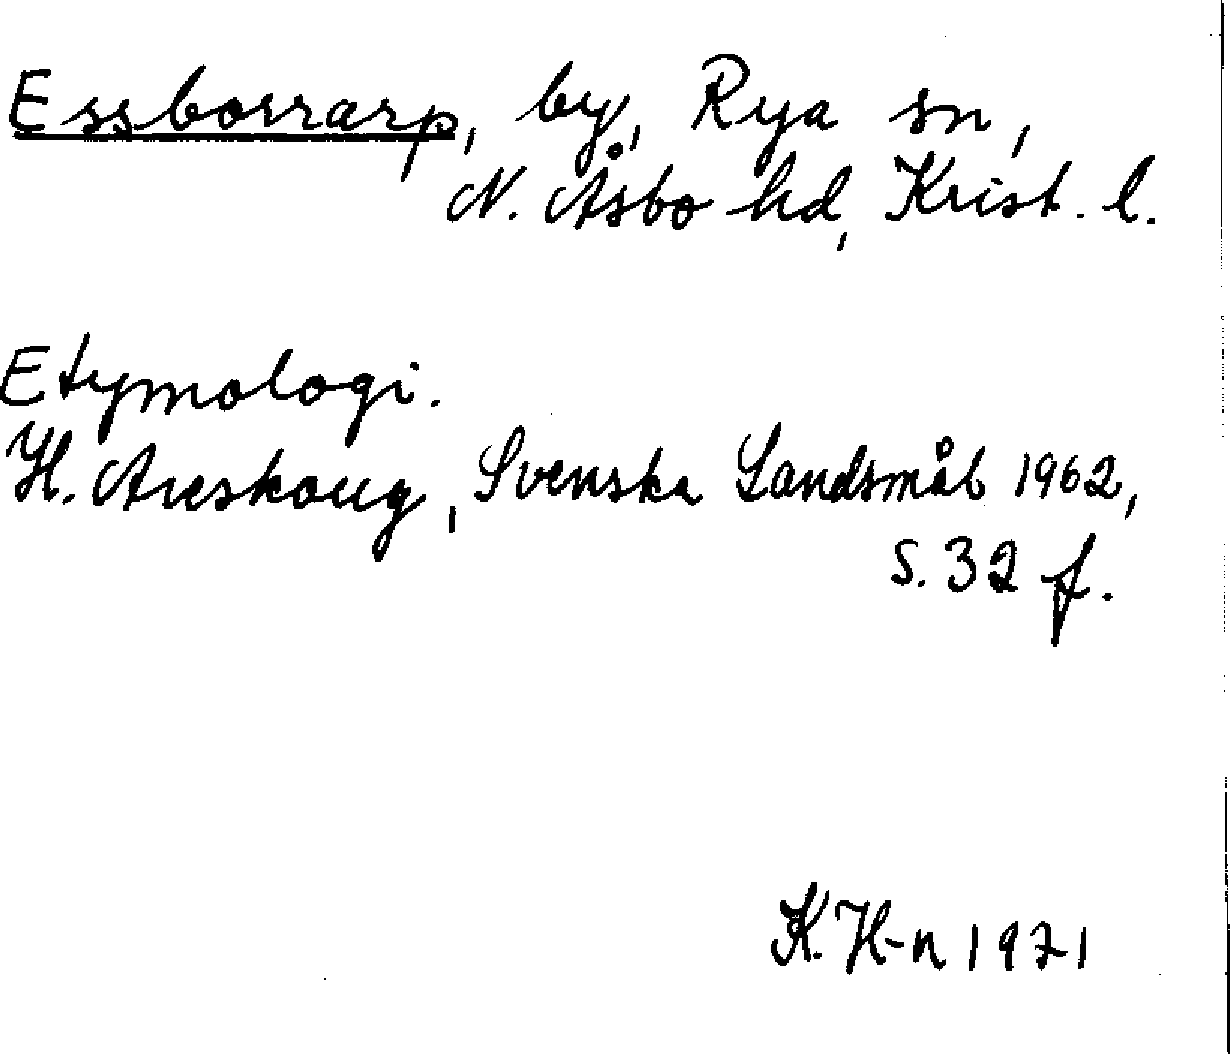 Essborrarp, by, Rya sn,
N. Åsbo hd, Krist. l.
Etymologi.
H. Areskoug, Svenska Landsmål 1962,
s. 32 f.
K. H-n 1971